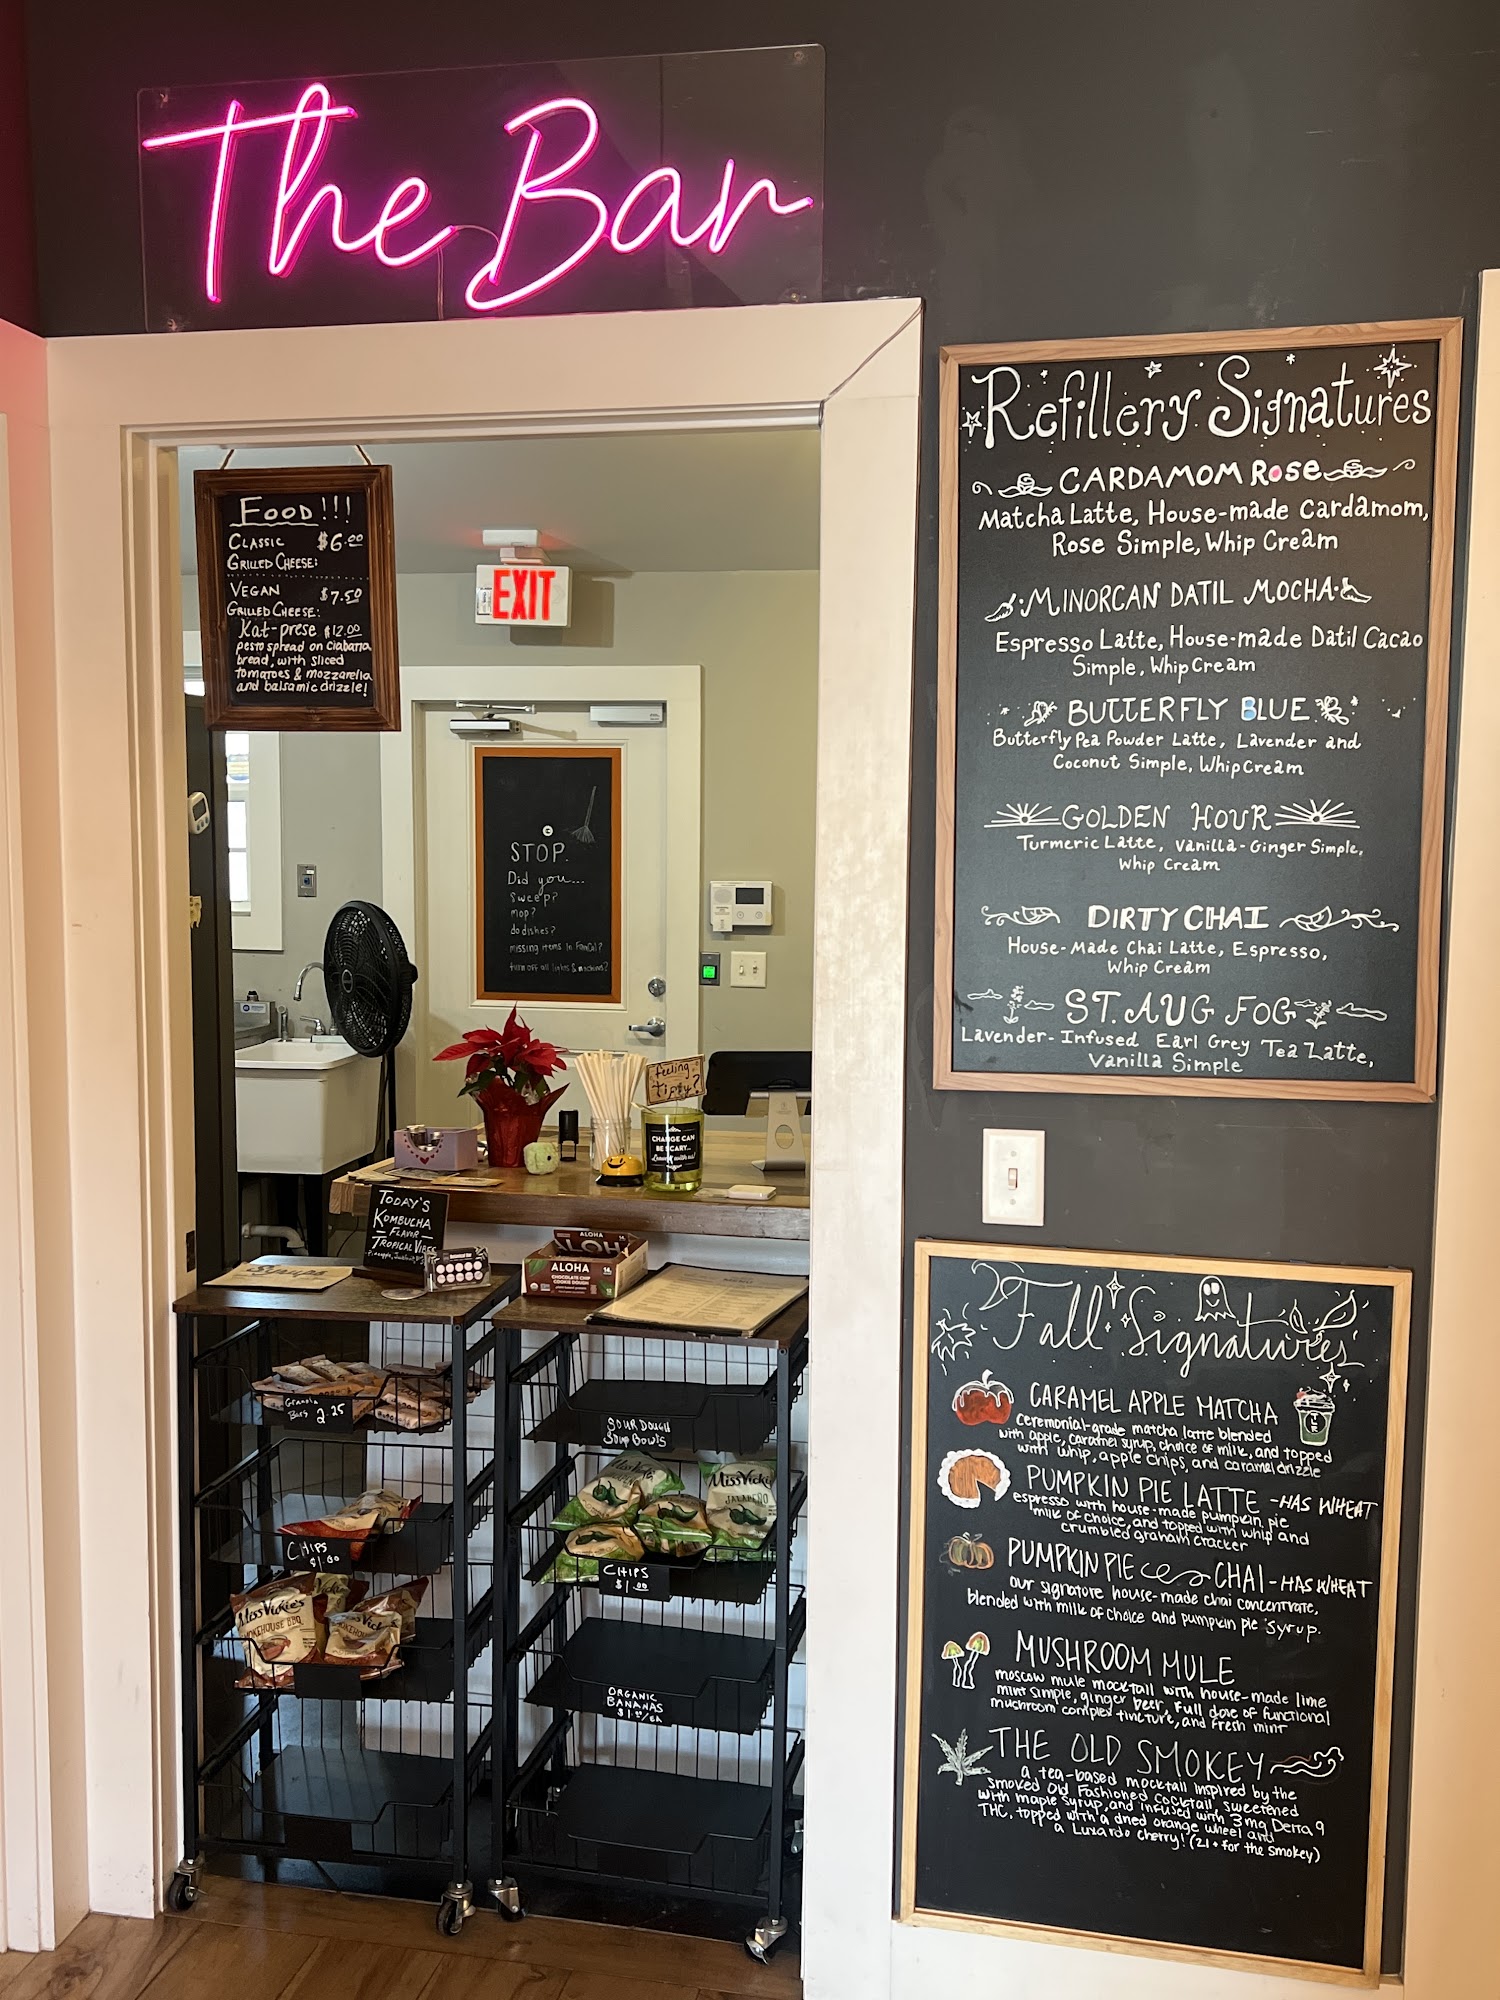 The Bar
FOOD!!!
CLASSIC $6.00
GRILLED CHEESE:
VEGAN $7.50
GRILLED CHEESE:
Kat-prese $12.00
pesto spread on ciabatta
bread, with sliced
tomatoes & mozzarella
and balsamic drizzle!
EXIT
STOP.
Did you...
Sweep?
mop?
do dishes?
missing items in
turn off all lights & machines?
feeling
tipsy?
CHANGE CAN
BE SCARY...
Leave it with us!
TODAY'S
KOMBUCHA
FLAVOR
TROPICAL VIBES
ALOHA
ALOHA
CHOCOLATE CHIP
COOKIE DOUGH
Granola
Bars 2.25
SOUR DOUGH
Soup Bowls
Miss Vickie's
Miss Vickie's
JALAPEÑO
CHIPS
$1.00
CHIPS
$1.00
Miss Vickie's
SMOKEHOUSE BBQ
Miss Vickie's
SMOKEHOUSE
ORGANIC
BANANAS
$1.00/EA
Refillery Signatures
CARDAMOM ROSE
Matcha Latte, House-made Cardamom,
Rose Simple, Whip Cream
MINORCAN DATIL MOCHA
Espresso Latte, House-made Datil Cacao
Simple, Whip Cream
BUTTERFLY BLUE
Butterfly Pea Powder Latte, Lavender and
Coconut Simple, Whip Cream
GOLDEN HOUR
Turmeric Latte, Vanilla-Ginger Simple,
Whip Cream
DIRTY CHAI
House-Made Chai Latte, Espresso,
Whip Cream
ST. AUG FOG
Lavender-Infused Earl Grey Tea Latte,
Vanilla Simple
Fall Signatures
CARAMEL APPLE MATCHA
Ceremonial-grade matcha latte blended
with apple, caramel syrup, choice of milk, and topped
with whip, apple chips, and caramel drizzle
PUMPKIN PIE LATTE -HAS WHEAT
espresso with house-made pumpkin pie
milk of choice, and topped with whip and
crumbled graham cracker
PUMPKIN PIE CHAI -HAS WHEAT
our signature house-made chai concentrate,
blended with milk of choice and pumpkin pie syrup.
MUSHROOM MULE
moscow mule mocktail with house-made lime
mint simple, ginger beer, full dose of functional
mushroom complex tincture, and fresh mint
THE OLD SMOKEY
a tea-based mocktail inspired by the
smoked Old Fashioned Cocktail, sweetened
with maple syrup, and infused with 3mg Delta 9
THC, topped with a dried orange wheel and
a Luxardo cherry! (21+ for the smokey)